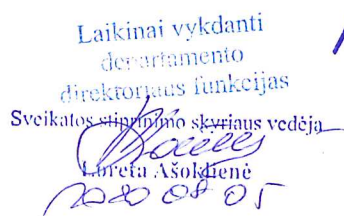 Laikinai vykdanti
departamento
direktoriaus funkcijas
Sveikatos stiprinimo skyriaus vedėja
Loreta Ašoklienė
2020 08 05